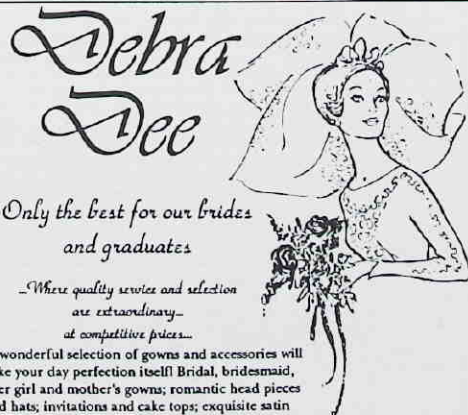 Debra
Dee
Only the best for our brides
and graduates
...Where quality service and selection
are extraordinary...
at competitive prices...
wonderful selection of gowns and accessories will
ke your day perfection itself! Bridal, bridesmaid,
er girl and mother's gowns; romantic head pieces
d hats; invitations and cake tops; exquisite satin